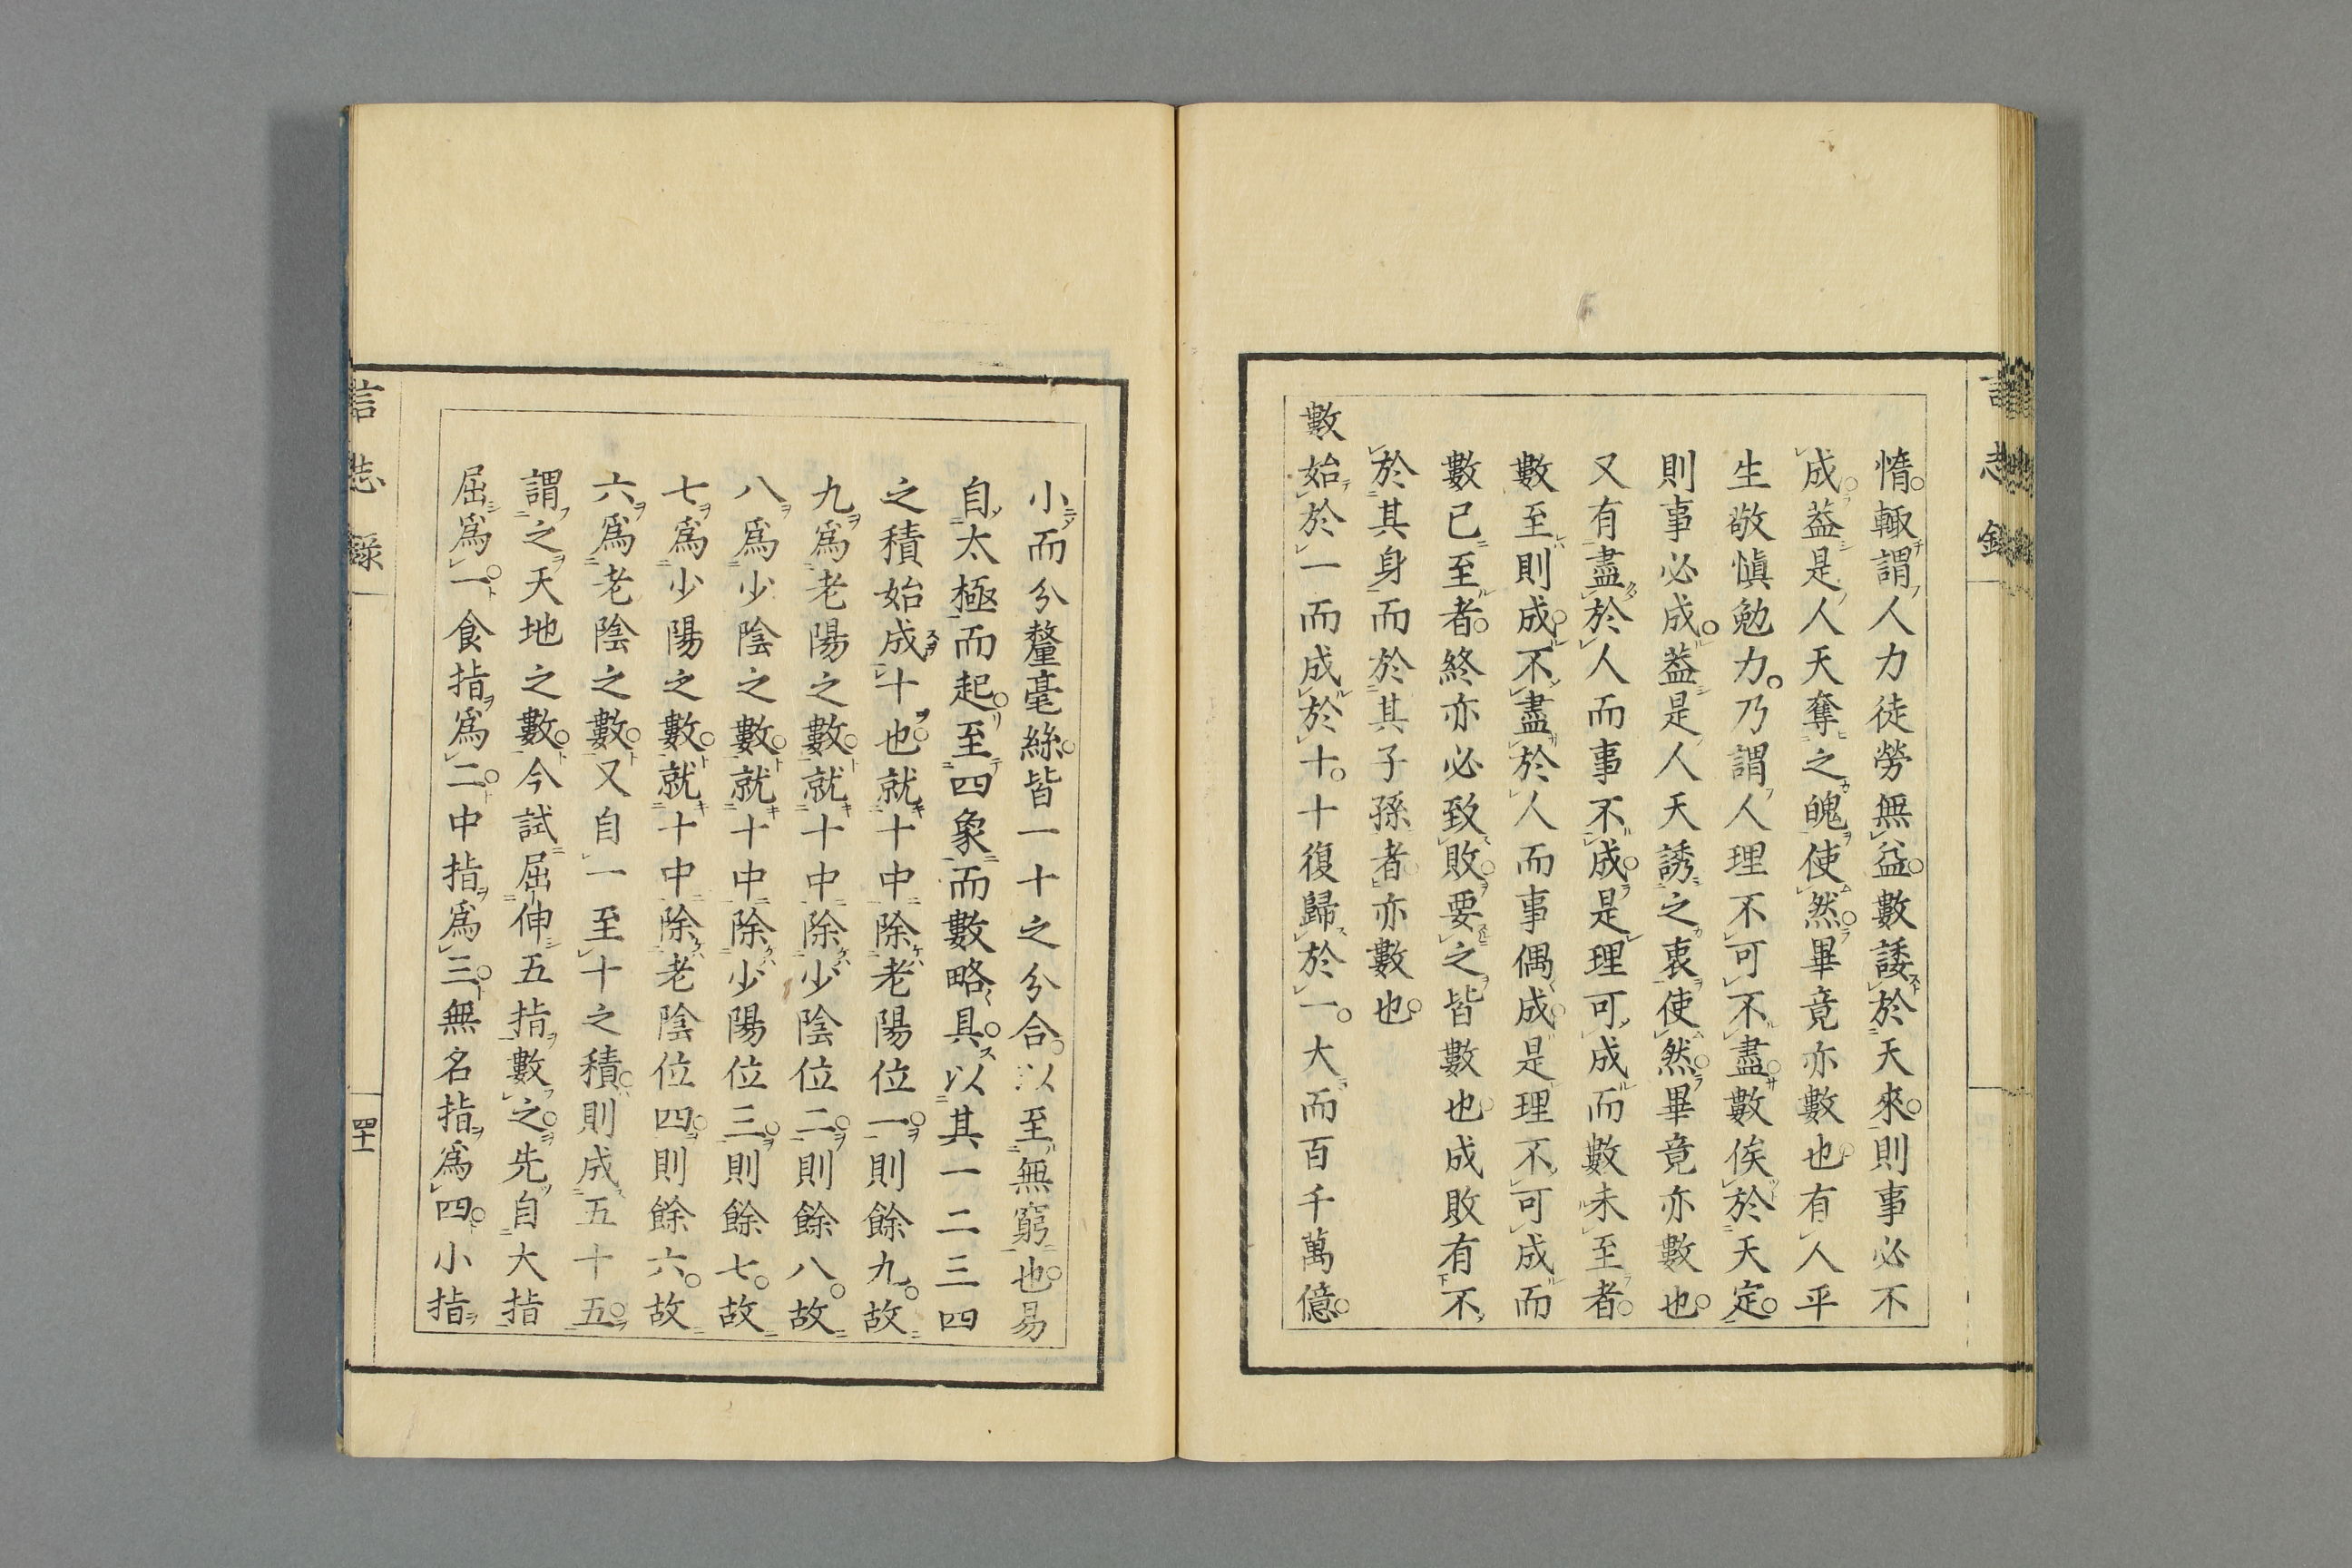 言志錄
惰。輙謂人力徒勞無益。數諉於天來。則事必不
成。葢是人天奪之魄使然。畢竟亦數也。有人平
生敬愼勉力。乃謂人理不可不盡。數俟於天定。
則事必成。葢是人天誘之衷使然。畢竟亦數也。
又有盡於人而事不成。是理可成而數未至者。
數至則成。不盡於人而事偶成。是理不可成而
數已至者。終亦必致敗。要之皆數也。成敗有不
於其身而於其子孫者。亦數也。
數始於一而成於十。十復歸於一。大而百千萬億。
小而分釐毫絲。皆一十之分合。以至無窮也。易
自太極而起。至四象而數略具。以其一二三四
之積始成十也。就十中除老陽位一。則餘九。故
九爲老陽之數。就十中除少陰位二。則餘八。故
八爲少陰之數。就十中除少陽位三。則餘七。故
七爲少陽之數。就十中除老陰位四。則餘六。故
六爲老陰之數。又自一至十之積。則成五十五。
謂之天地之數。今試屈伸五指數之。先自大指
屈爲一。食指爲二。中指爲三。無名指爲四。小指
言志錄
四十